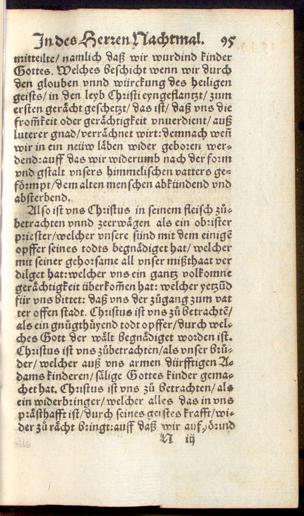 In des Herren Nachtmal. 95
mitteilte/ namlich daß wir wurdind kinder
Gottes. Welches beschicht wenn wir durch
den glouben vnnd würckung des heiligen
geists/ in den leyb Christi eyngeflantzt/ zum
ersten gerächt geschetzt/ das ist/ daß vns die
fromkeit oder gerächtigkeit vnuerdient/ auß
luterer gnad/ verrächnet wirt: demnach weñ
wir in ein neüw läben wider geboren wer-
dend: auff das wir widerumb nach der form
vnd gstalt vnsers himmelischen vatters ge-
förmpt/ dem alten menschen abkündend vnd
absterbend.
Also ist vns Christus in seinem fleisch zů-
betrachten vnnd zeerwägen als ein obrister
priester/ welcher vnsere sünd mit dem einigē
opffer seines todts begnädiget hat/ welcher
mit seiner gehorsame all vnser mißthaat ver
dilget hat: welcher vns ein gantz volkomne
gerächtigkeit überkom̄en hat: welcher yetzūd
für vns bittet: daß vns der zůgang zum vat
ter offen stadt. Christus ist vns zů betrachtē/
als ein gnůgthůyend todtopffer/ durch wel-
ches Gott der wält begnädiget worden ist.
Christus ist vns zůbetrachten/ als vnser brů-
der/ welcher auß vns armen dürfftigen A-
dams kinderen/ sälige Gottes kinder gema-
chet hat. Christus ist vns zů betrachten/ als
ein widerbringer/ welcher alles das in vns
prästhafft ist/ durch seines geistes krafft/ wi-
der zů rächt bringt: auff daß wir auffhörind
N iij